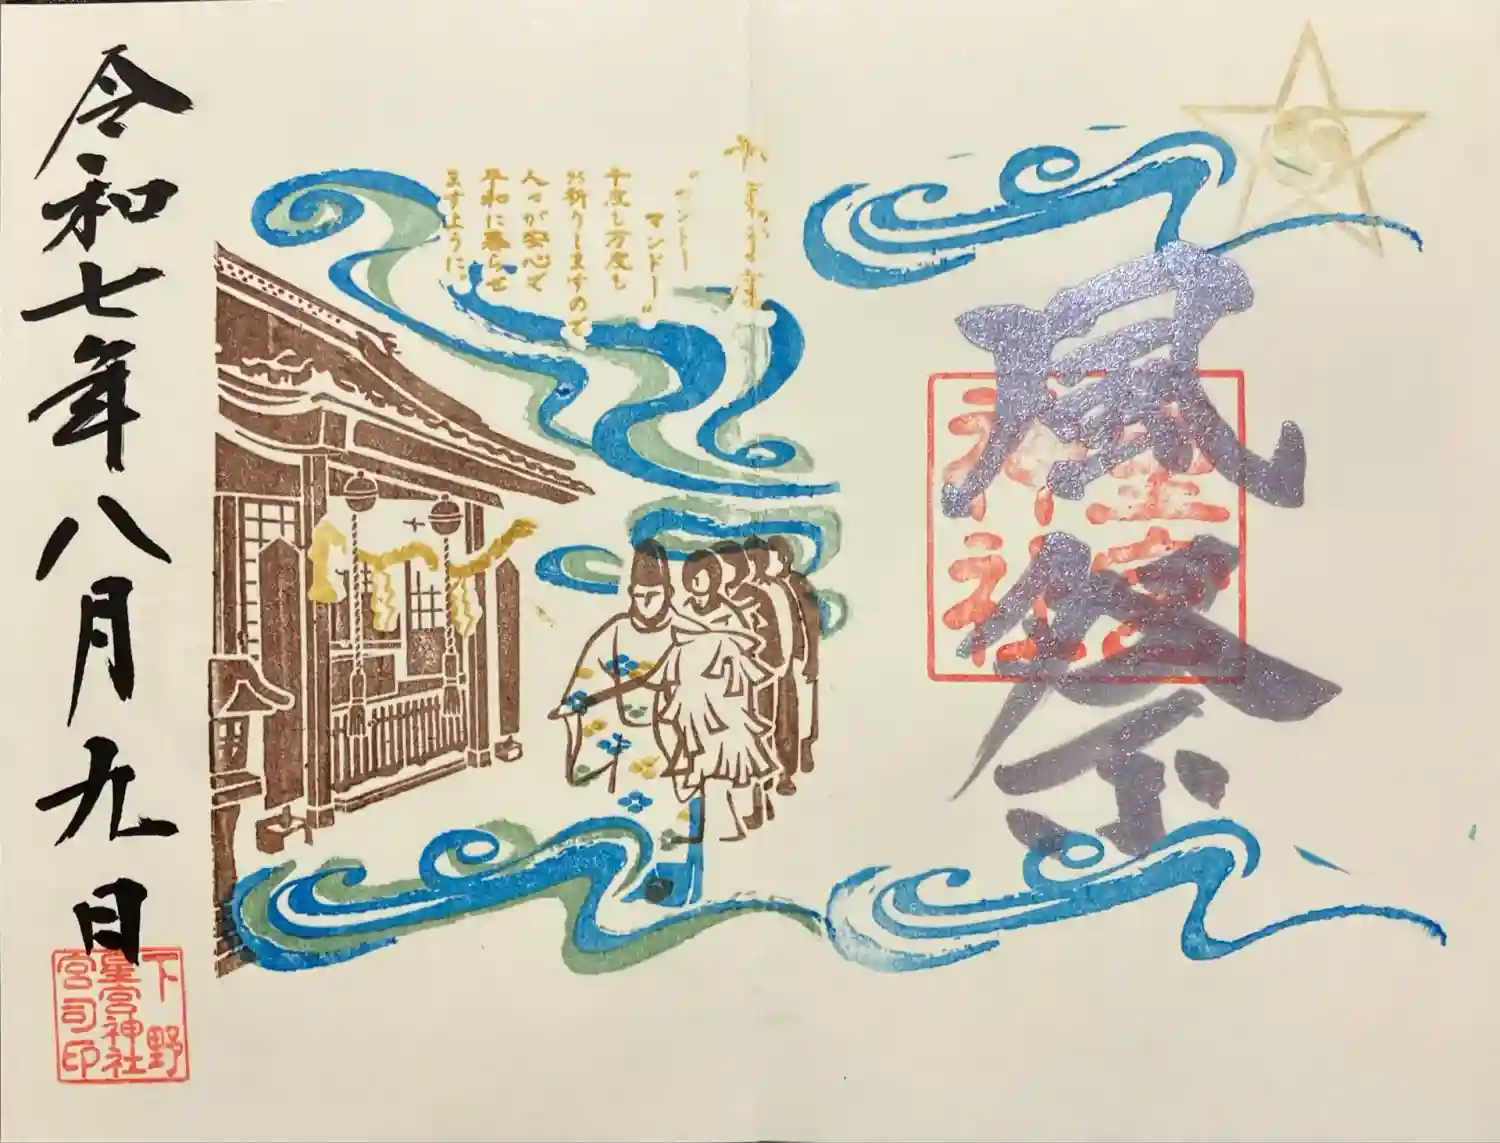 風祭
星宮
神社
"センドー
マンドー"
千度も万度も
お祈りしますので
人々が安心して
平和に暮らせ
ますように。
令和七年八月九日
下野
星宮神社
宮司印